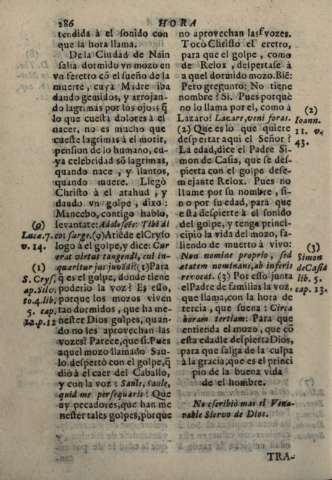 286 HORA
tendida à el sonido con
que la hora llama.
De la Ciudad de Nain
salia dormido vn mozo en
vn feretro cō el sueño de la
muerte, cuya Madre iba
dando gemidos, y arrojan-
do lagrimas por los ojos: q̄
lo que cuesta dolores à el
nacer, no es mucho que
cueste lagrimas à el morir,
pension de lo humano, cu-
ya celebridad sō lagrimas,
quando nace, y llantos,
quando muere. Llegò
Christo à el atahud, y
daudo vn golpe, dixo:
Mancebo, contigo hablo,
levantate: Adolescēs: Tibi di
co, surge. (9) Atiēde el Cryso
logo à el golpe, y dice: Cur
erat oletus tangendi, cui in-
quaritur jus jubēdi: (1) Para
q̄ es el golpe, donde tiene
poderio la voz? Es esso,
porque los mozos viven
tan dormidos, que ha me-
nester Dios golpes, quan-
do no les aprovechan las
vozes? Parece, que si. Pues
aquel mozo llamado Sau-
lo despertò con el golpe, q̄
diò à el caer del Caballo,
y con la voz: Saule, Saule,
quid me persequeris? Que
ay pecadores, que han me
nester tales golpes, porque
(9)
Lucæ. 7.
v. 14.
(1)
S. Crys.
ap. Silv.
to. 4. lib.
5. cap.
32. p. 12
no aprovechan las vozes.
Tocò Christo el eretro,
para que el golpe, como
de Relox, despertase à
a quel dormido mozo. Biē:
Pero pregunto: No tiene
nombre? Si. Pues porquè
no lo llama por el, como à
Lazaro? Lazare, veni foras.
(2) Que es lo que quiere
despertar aqui el Señor?
La edad, dice el Padre Si-
mon de Casia, que la des-
pierta con el golpe dese-
mejante Relox. Pues no
llame por su nombre, si-
no por su edad, para que
esta despierte à el sonido
del golpe, y tenga princi-
cipio la vida del mozo, fa-
liendo de muerto à vivo:
Non nomine proprio, sed
ætatem nominans, ab inferis
revocat. (3) Por esso junta
el Padre de familias la voz,
que llama, con la hora de
tercia, que suena: Circa
horam tertiam: Para que
entienda el mozo, que cō
esta edad le despierta Dios,
para que salga de la culpa
à la gracia; que es el princi
pio de la buena vida
de el hombre.
(2)
Ioann.
11. v.
43.
(3)
Simon
de Casia
lib. 5.
cap. 13.
No escribiò mas el Vene-
rable Siervo de Dios.
TRA-